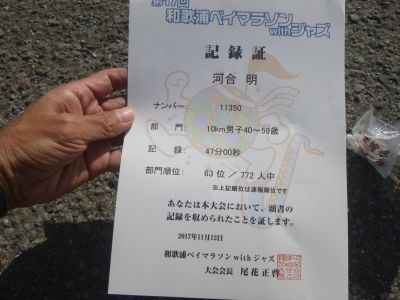 第17回
和歌浦ベイマラソン
withジャズ
記録証
河合 明
ナンバー: 11350
部 門: 10km男子40～59歳
記 録: 47分00秒
部門順位: 63位 / 772人中
※上記順位は速報順位です
あなたは本大会において、頭書の
記録を収められたことを証します。
2017年11月12日
和歌浦ベイマラソンwithジャズ
大会会長 尾花正啓